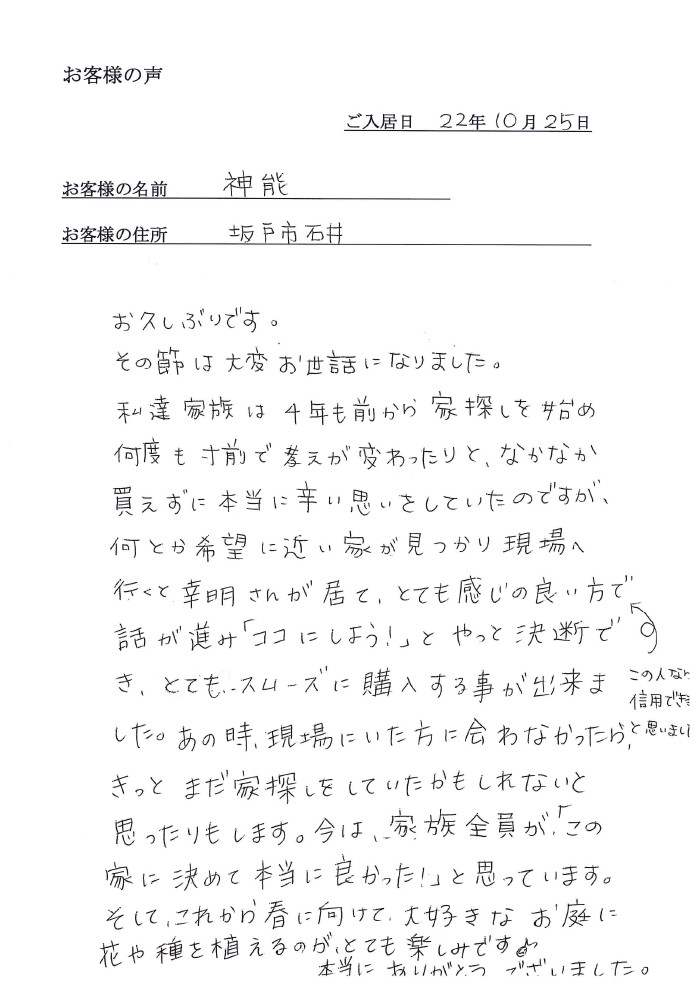 お客様の声
ご入居日 22年10月25日
お客様の名前 神能
お客様の住所 坂戸市石井
お久しぶりです。
その節は大変お世話になりました。
私達家族は4年も前から家探しを始め
何度も寸前で考えが変わったりと、なかなか
買えずに本当に辛い思いをしていたのですが、
何とか希望に近い家が見つかり現場へ
行くと幸明さんが居て、とても感じの良い方で
話が進み「ココにしよう!」とやっと決断で
き、とてもスムーズに購入する事が出来ま
した。あの時、現場にいた方に会わなかったら、
きっとまだ家探しをしていたかもしれないと
思ったりもします。今は、家族全員が、「この
家に決めて本当に良かった!」と思っています。
そして、これから春に向けて、大好きなお庭に
花や種を植えるのが、とても楽しみです♪
本当にありがとうございました。
この人なら
信用でき
と思いまし